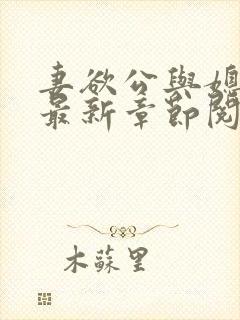 妻欲公與媳
最新章節閱
木蘇里